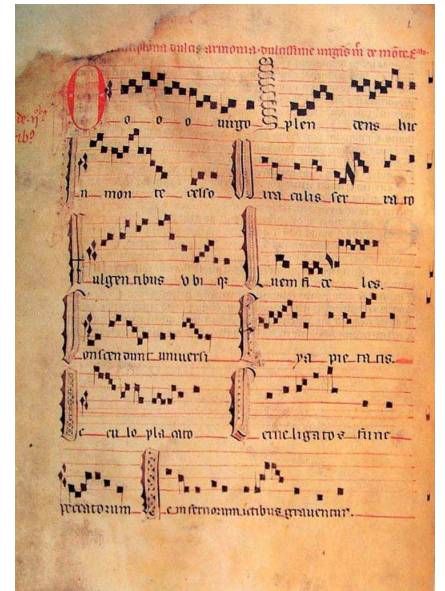 dulcis armonia dulcissime virginis
O o o o virgo splen dens hic
In mon te celso Miraculis ser ra to
Fulgentibus vbi q Quem fi de les.
Conscendunt universi Eya pie ta tis.
o cu lo pla cato Cerne ligatos fune
peccatorum Ne infernorum ictibus graventur.